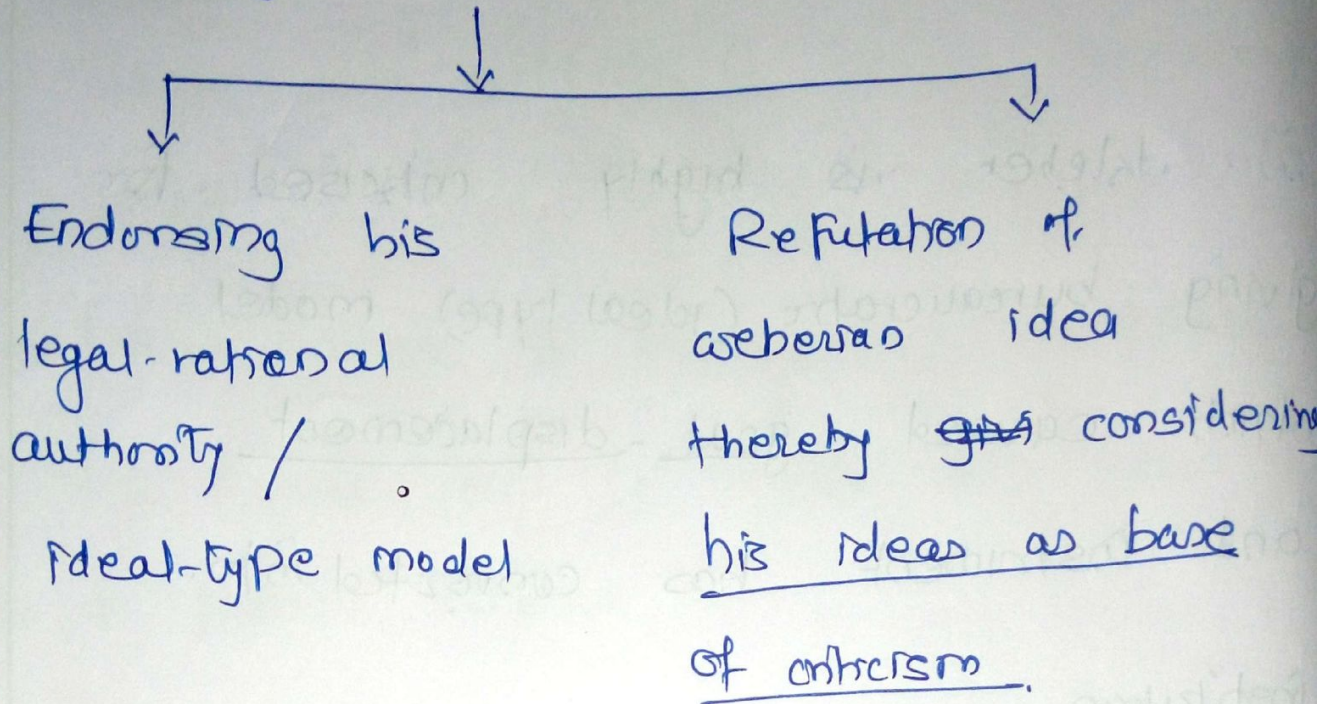 Endorsing his
legal-rational
authority /
ideal-type model
Refutation of
weberian idea
thereby considering
his ideas as base
of criticism.